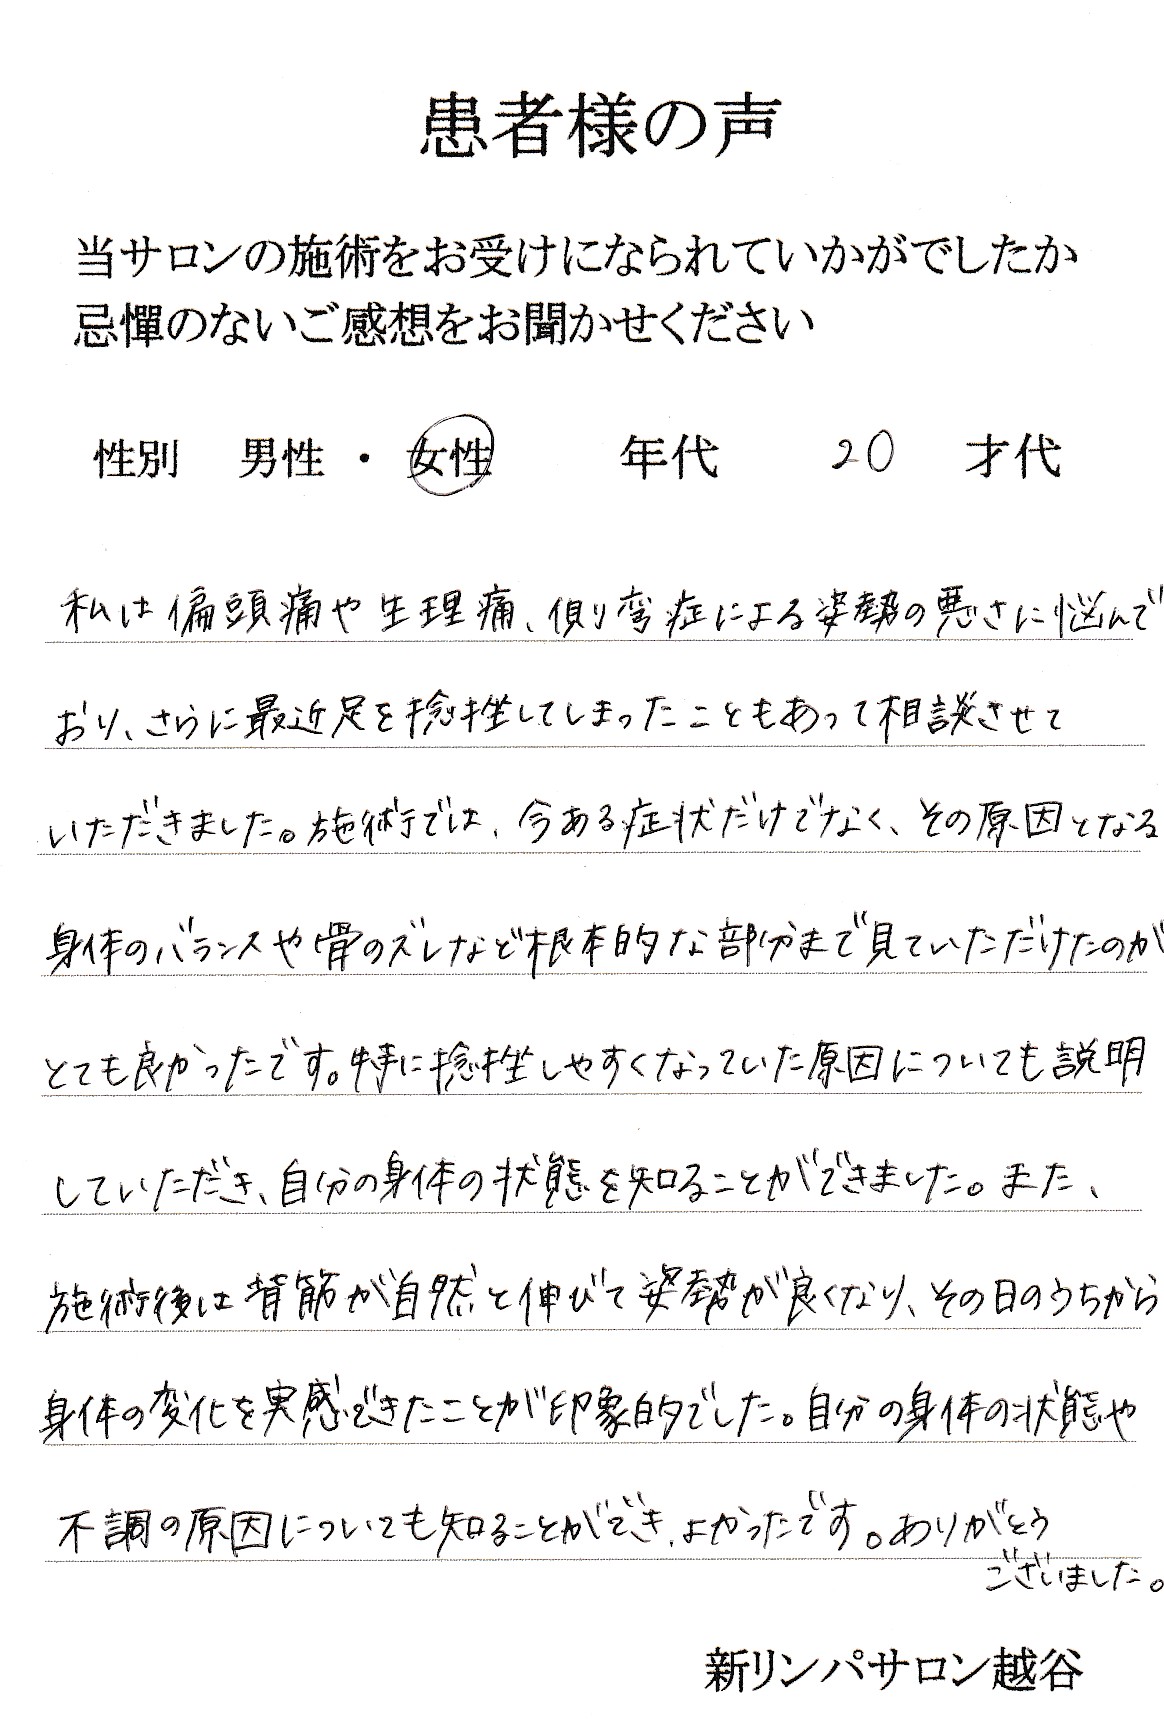 患者様の声
当サロンの施術をお受けになられていかがでしたか
忌憚のないご感想をお聞かせください
性別 男性・女性 年代 20 才代
私は偏頭痛や生理痛、側り弯症による姿勢の悪さに悩んで
おり、さらに最近足を捻挫してしまったこともあって相談させて
いただきました。施術では、今ある症状だけでなく、その原因となる
身体のバランスや骨のズレなど根本的な部分まで見ていただけたのが
とても良かったです。特に捻挫しやすくなっていた原因についても説明
していただき、自分の身体の状態を知ることができました。また、
施術後は背筋が自然と伸びて姿勢が良くなり、その日のうちから
身体の変化を実感できたことが印象的でした。自分の身体の状態や
不調の原因についても知ることができ、よかったです。ありがとう
ございました。
新リンパサロン越谷